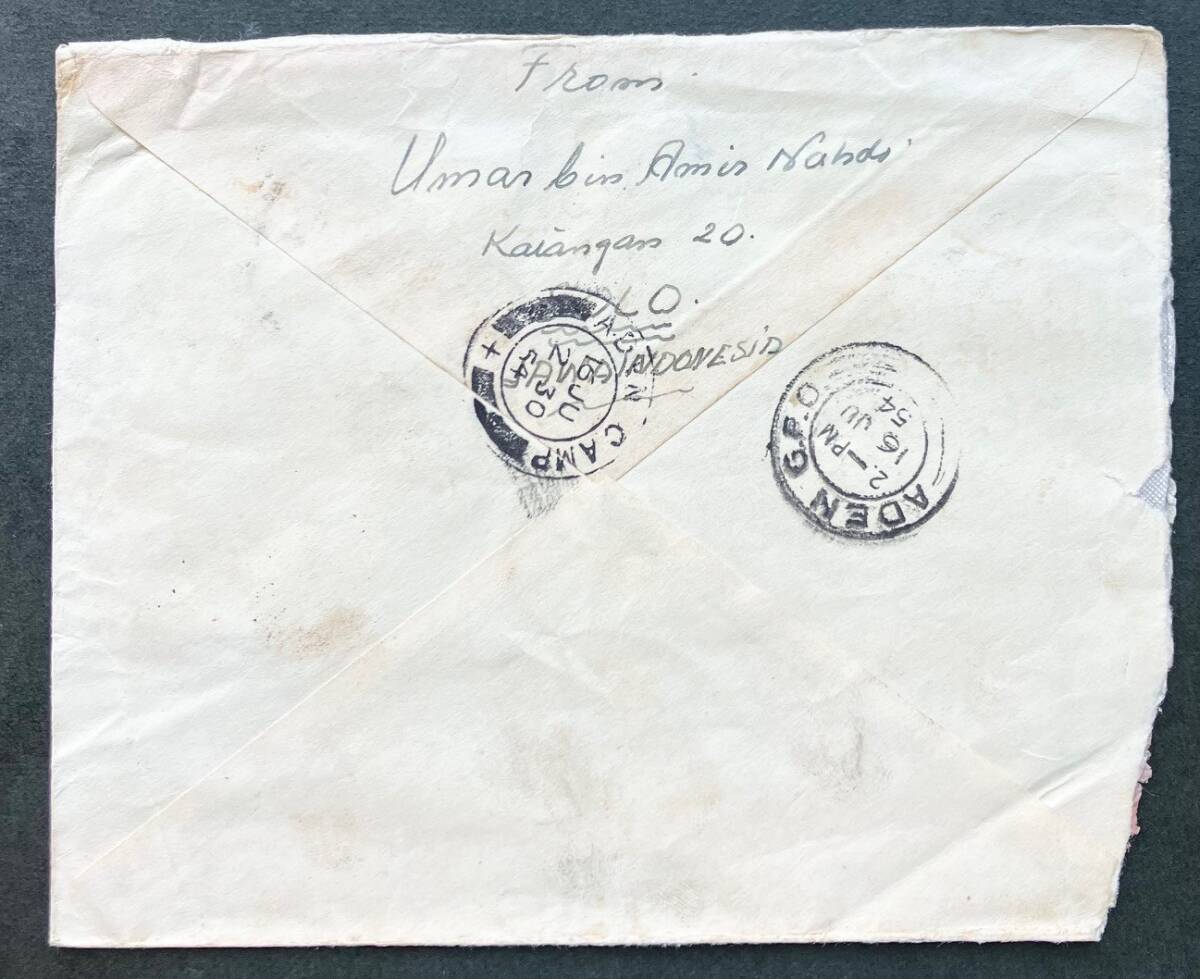 From
Umar bin Amir Nahdi
Kaiangan 20.
JAWA INDONESIA
ADEN CAMP
+
16 JU
54
ADEN G.P.O
2. 1 PM
16 JU
54